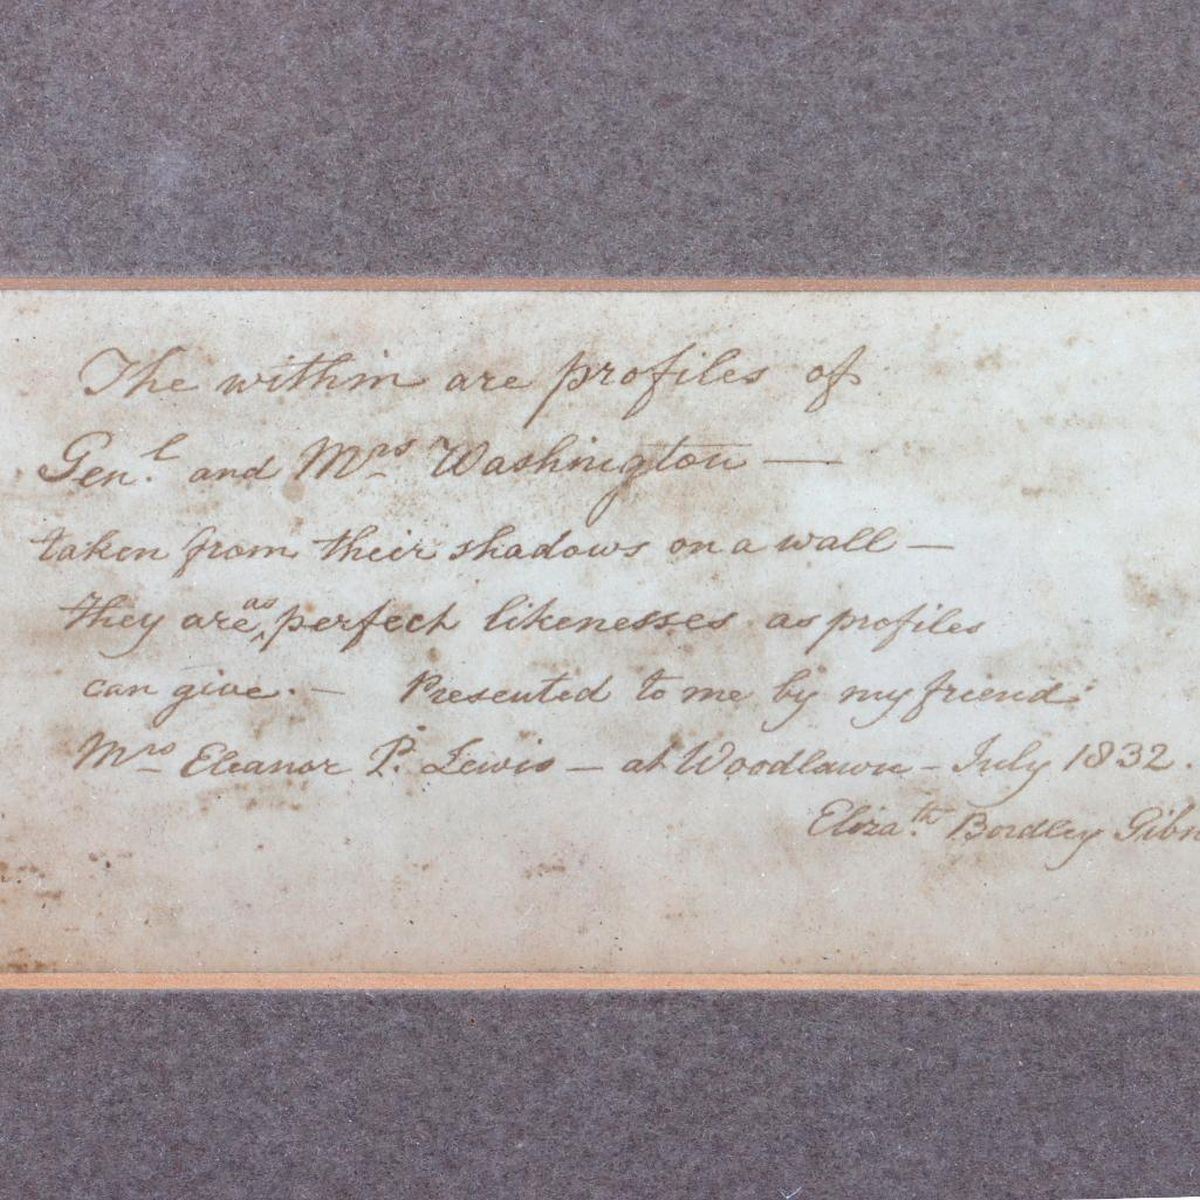 The within are profiles of
Gen.l and Mrs Washington —
taken from their shadows on a wall —
they are as perfect likenesses as profiles
can give. — Presented to me by my friend
Mrs Eleanor P. Lewis — at Woodlawn — July 1832.
Eliza.th Bordley Gib